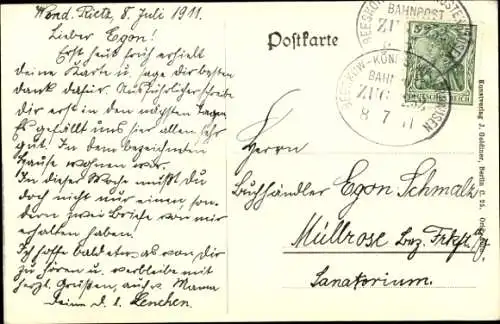 Wend. Rietz, 8. Juli 1911.
Lieber Egon!
Erst heut früh erhielt
deine Karte u. sage dir besten
dank dafür. Ausführlicher schreib
dir erst in den nächsten Tagen.
Es gefällt uns hier allen sehr
gut. In dem bezeichneten
Hause wohnen wir.
In dieser Woche mußt du
doch nicht nur einen, son-
dern zwei Briefe von mir
erhalten haben!
Ich hoffe bald etwas von dir
zu hören u. verbleibe mit
herzl. Grüßen, auch v. Mama
Deine d. l. Lenchen.
Postkarte
BEESKOW-KÖNIGS
BAHNPOST
ZUG
8 7 11
DEUTSCHES REICH
5
Herrn
Buchhändler Egon Schmalz
Müllrose Bez. Frkft/O.
Sanatorium.
Kunstverlag J. Goldiner, Berlin C. 25.